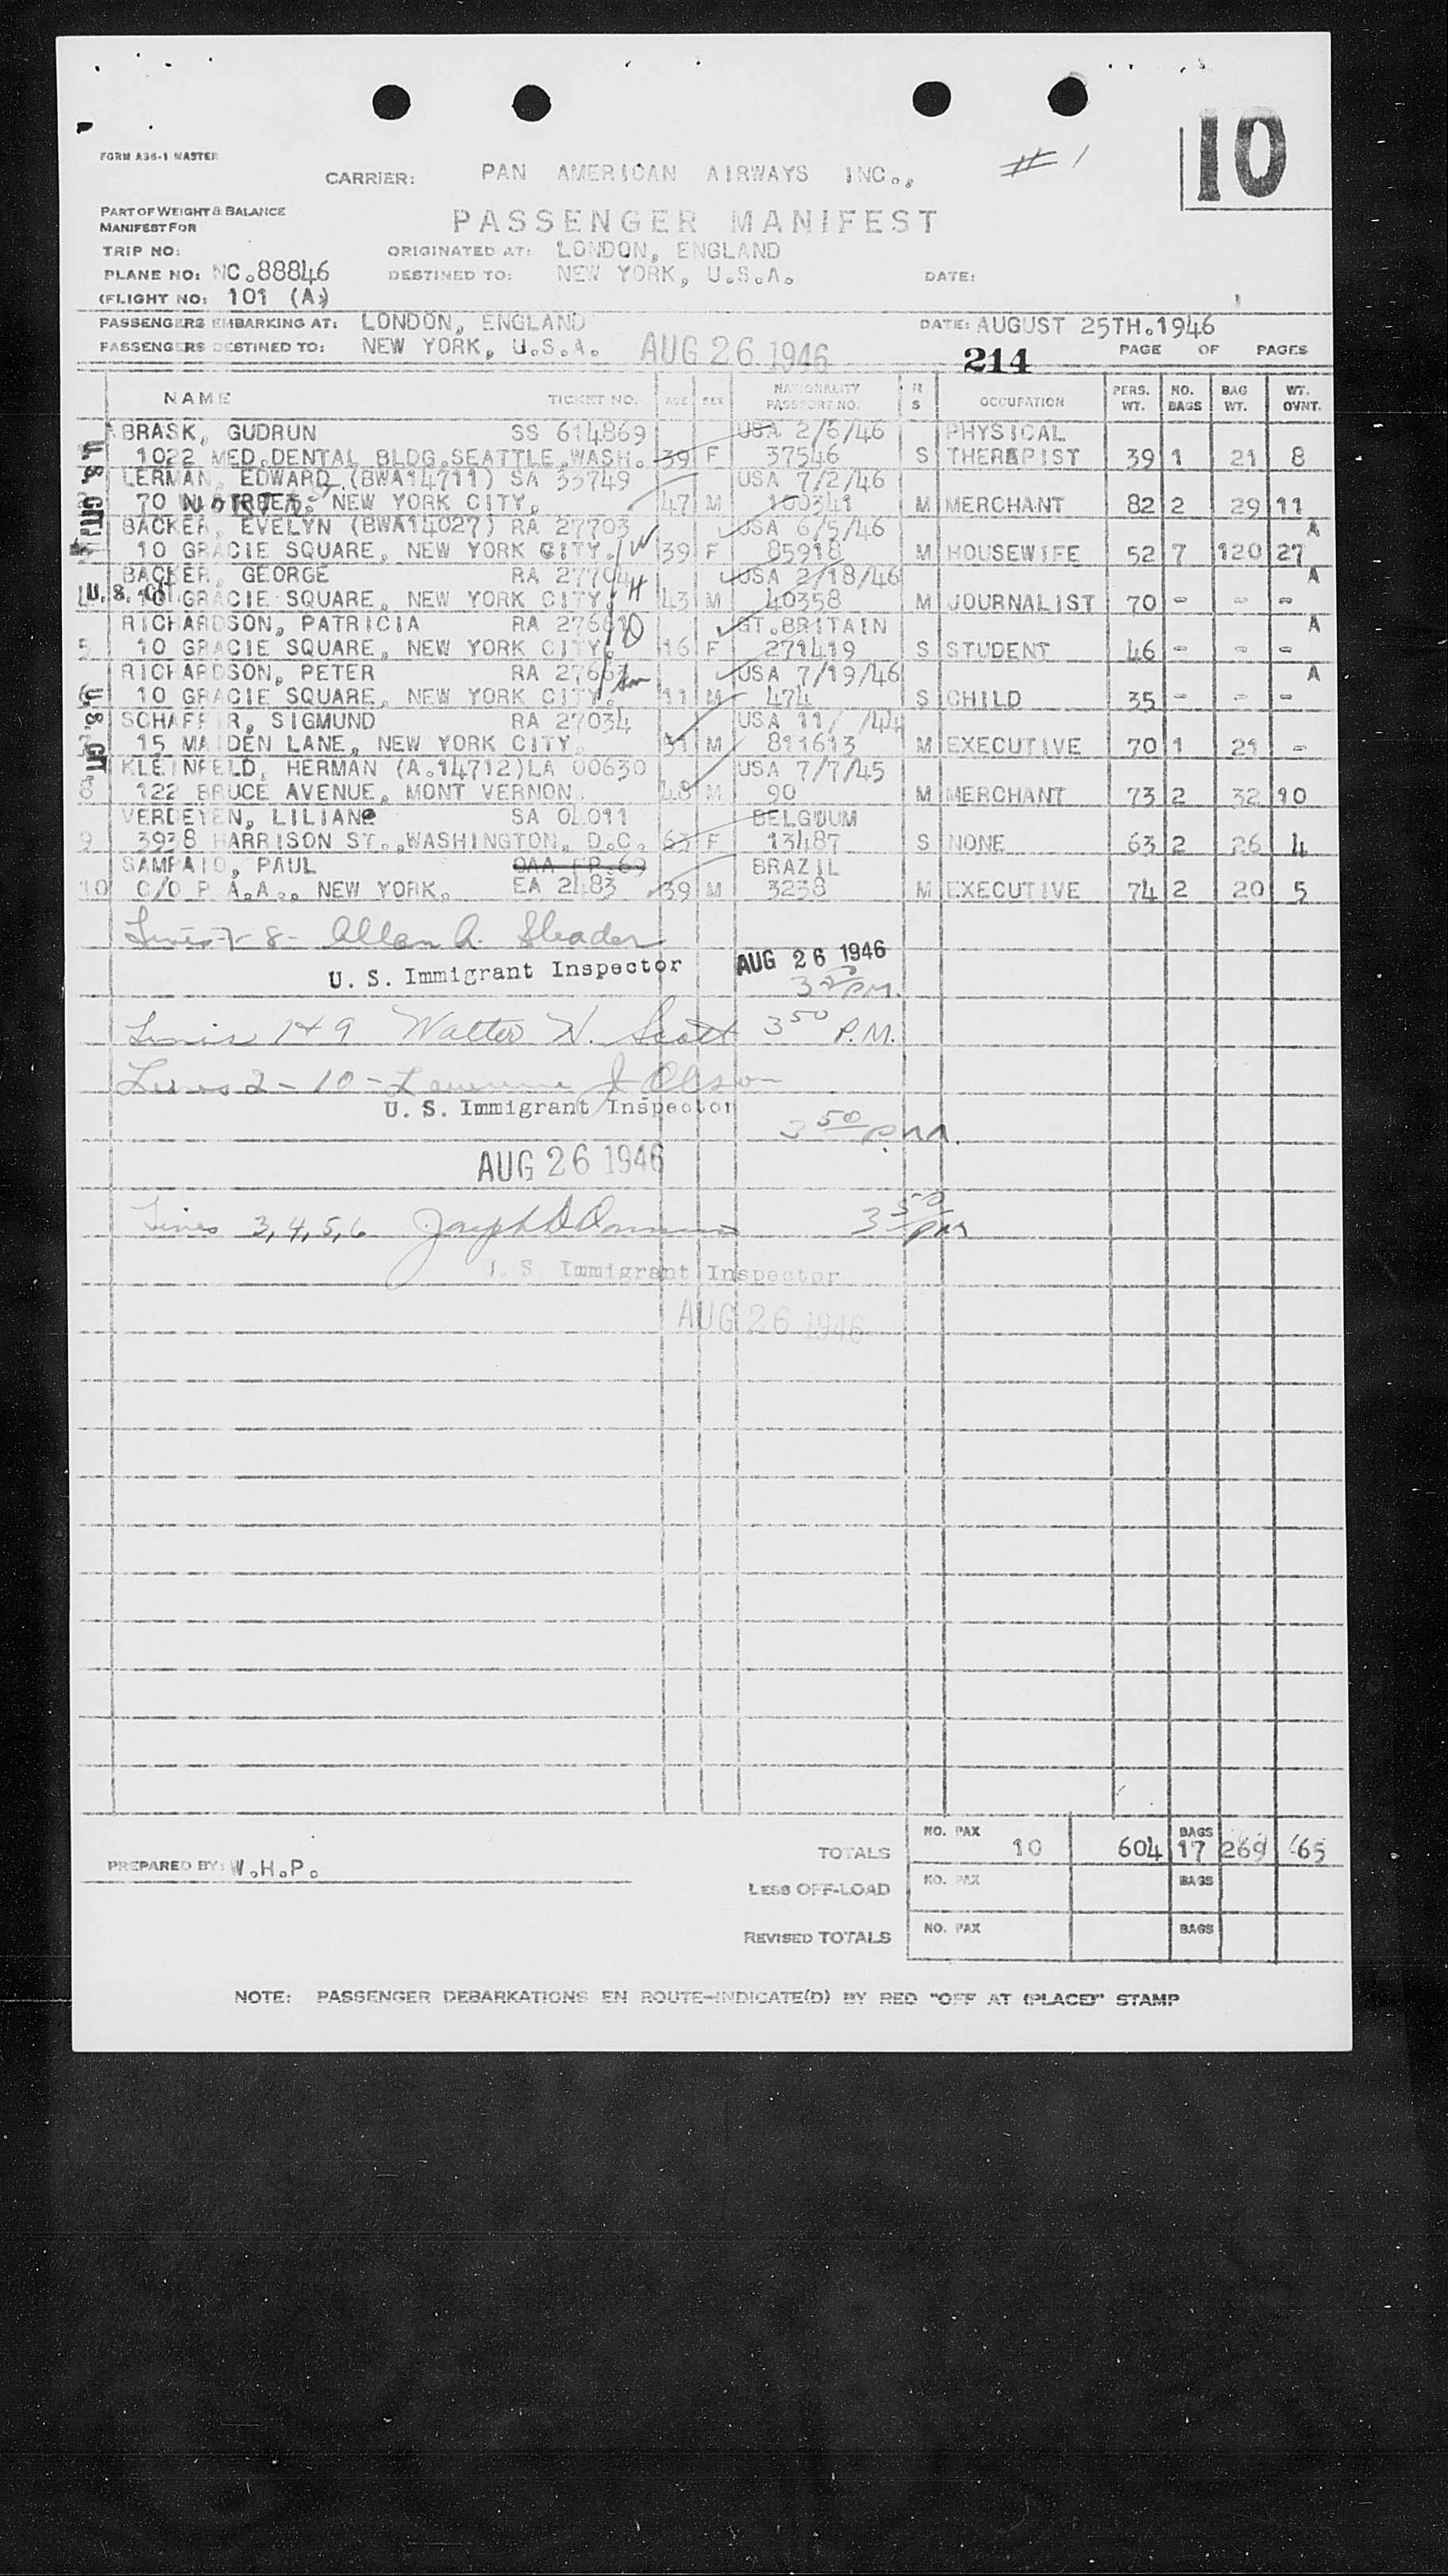 10
# 1
FORM A36-1 MASTER
CARRIER: PAN AMERICAN AIRWAYS INC.,
PART OF WEIGHT & BALANCE
MANIFEST FOR
PASSENGER MANIFEST
TRIP NO: ORIGINATED AT: LONDON, ENGLAND
PLANE NO: NC.88846 DESTINED TO: NEW YORK, U.S.A. DATE:
(FLIGHT NO: 101 (A)
PASSENGERS EMBARKING AT: LONDON, ENGLAND DATE: AUGUST 25TH.1946
PASSENGERS DESTINED TO: NEW YORK, U.S.A. AUG 26 1946 214 PAGE OF PAGES
NAME TICKET NO. AGE SEX NATIONALITY PASSPORT NO. M S OCCUPATION PERS. WT. NO. BAGS BAG WT. WT. OVNT.
BRASK, GUDRUN SS 614869 USA 2/5/46 PHYSICAL
1022 MED.DENTAL BLDG.SEATTLE,WASH. 39 F 37546 S THERAPIST 39 1 21 8
LERMAN, EDWARD (BWA14711) SA 33749 USA 7/2/46
70 NEW YORK CITY, 47 M 100341 M MERCHANT 82 2 29 11
BACKER, EVELYN (BWA14027) RA 27703 USA 6/5/46 A
10 GRACIE SQUARE, NEW YORK CITY. W 39 F 85918 M HOUSEWIFE 52 7 120 27
BACKER, GEORGE RA 27704 USA 2/18/46 A
10 GRACIE SQUARE, NEW YORK CITY. H 43 M 40358 M JOURNALIST 70 - - -
RICHARDSON, PATRICIA RA 27661 D GT.BRITAIN A
5 10 GRACIE SQUARE, NEW YORK CITY. 16 F 271419 S STUDENT 46 - - -
RICHARDSON, PETER RA 27662 USA 7/19/46 A
10 GRACIE SQUARE, NEW YORK CITY. 11 M 474 S CHILD 35 - - -
SCHAFFIR, SIGMUND RA 27034 USA 11/ /44
15 MAIDEN LANE, NEW YORK CITY. 51 M 811613 M EXECUTIVE 70 1 21 -
KLEINFELD, HERMAN (A.14712)LA 00630 USA 7/7/45
8 122 BRUCE AVENUE, MONT VERNON. 48 M 90 M MERCHANT 73 2 32 10
VERDEYEN, LILIANe SA 04011 BELGUUM
9 3938 HARRISON ST.,WASHINGTON, D.C. 63 F 13487 S NONE 63 2 26 4
SAMPAIO, PAUL OAA FP.69 BRAZIL
10 C/O P.A.A., NEW YORK. EA 2483 39 M 3238 M EXECUTIVE 74 2 20 5
U. S. CIT.
U. S. CIT.
U. S. CIT.
Lines 7 8- Allan A. Sleader
U. S. Immigrant Inspector AUG 26 1946
350 PM.
Lines 1 & 9 Walter N. Scott 350 P.M.
Lines 2 - 10 - Lawrence J Olson
U. S. Immigrant Inspector
350 PM.
AUG 26 1946
Lines 3, 4, 5, 6 Joseph 350 PM
U. S. Immigrant Inspector
AUG 26 1946
TOTALS NO. PAX 10 604 BAGS 17 269 65
PREPARED BY: W.H.P.
LESS OFF-LOAD NO. PAX BAGS
REVISED TOTALS NO. PAX BAGS
NOTE: PASSENGER DEBARKATIONS EN ROUTE-INDICATE(D) BY RED "OFF AT (PLACE)" STAMP